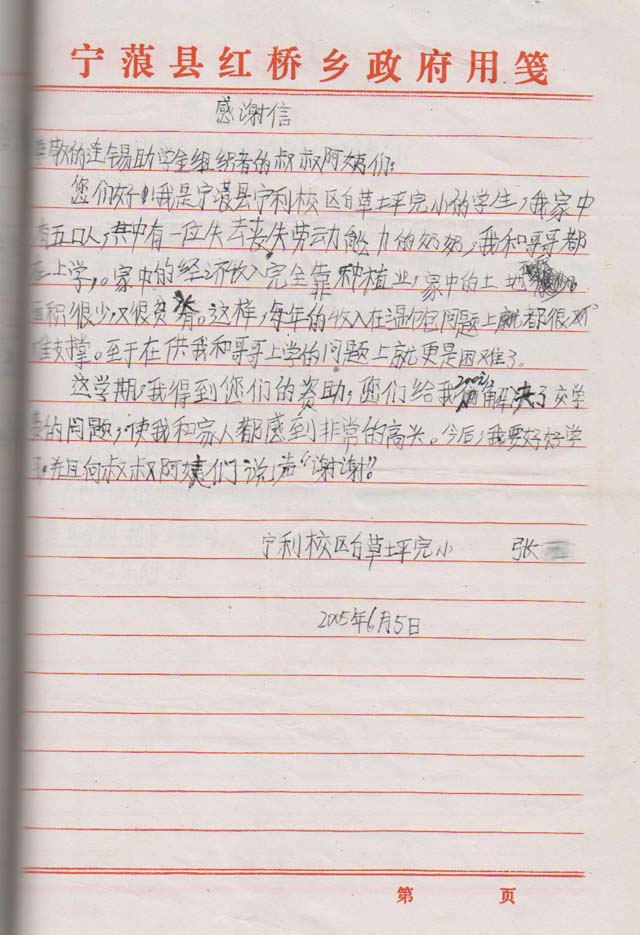 宁蒗县红桥乡政府用笺
感谢信
敬的连锡助学金组织者的叔叔阿姨们:
您们好!我是宁蒗县宁利校区白草坪完小的学生,我家中
有五口人,其中有一位失去丧失劳动能力的奶奶,我和哥哥都
上学,。家中的经济收入完全靠种植业,家中的土地
面积很少,又很贫脊。这样,每年的收入在温饱问题上就都很难
支撑。至于在供我和哥哥上学的问题上就更是困难了。
这学期,我得到您们的资助,您们给我200元解决了交学
费的问题,使我和家人都感到非常的高兴。今后,我要好好学
习,并且向叔叔阿姨们说声“谢谢”
宁利校区白草坪完小 张
2005年6月5日
第 页